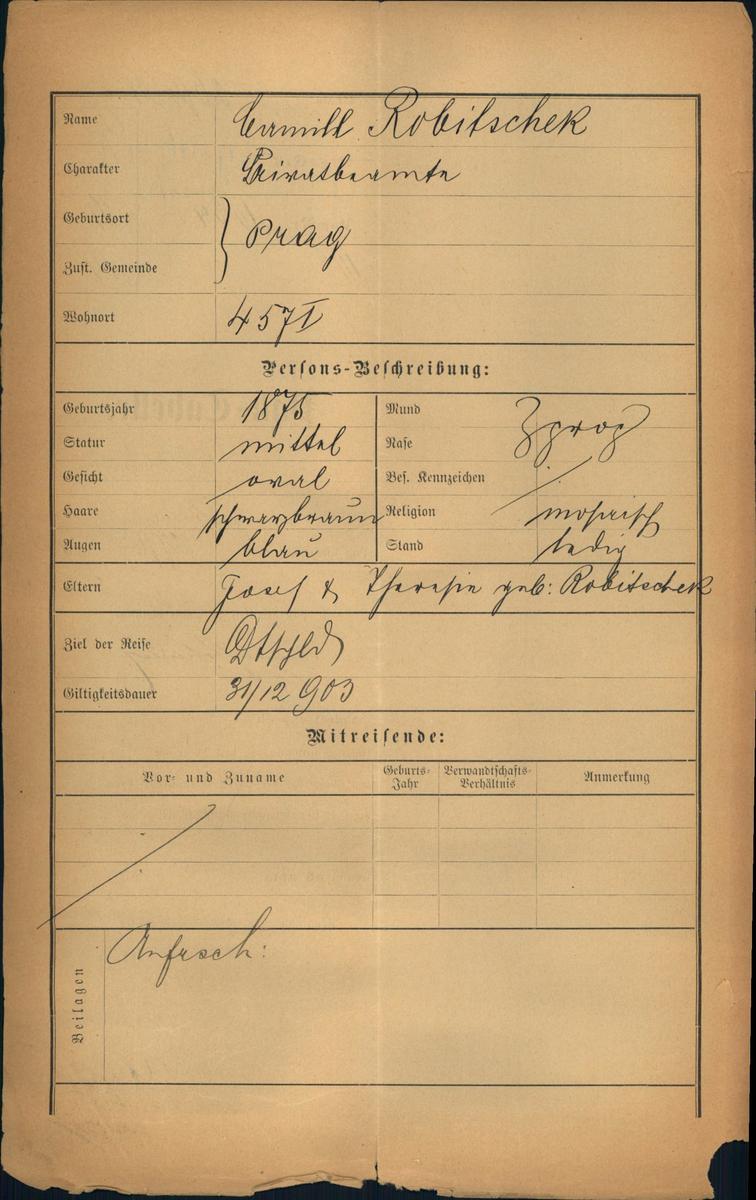 Name Camill Robitschek
Charakter Privatbeamte
Geburtsort
Zust. Gemeinde } Prag
Wohnort 457 I
Persons-Beschreibung:
Geburtsjahr 1875 Mund
Statur mittel Nase
Gesicht oval Bes. Kennzeichen /
Haare schwarzbraun Religion mosaisch
Augen blau Stand ledig
Eltern Josef & Theresie geb: Robitschek
Ziel der Reise Dtschld
Giltigkeitsdauer 31/12 903
Mitreisende:
Vor- und Zuname Geburts-Jahr Verwandtschafts-Verhältnis Anmerkung
Beilagen